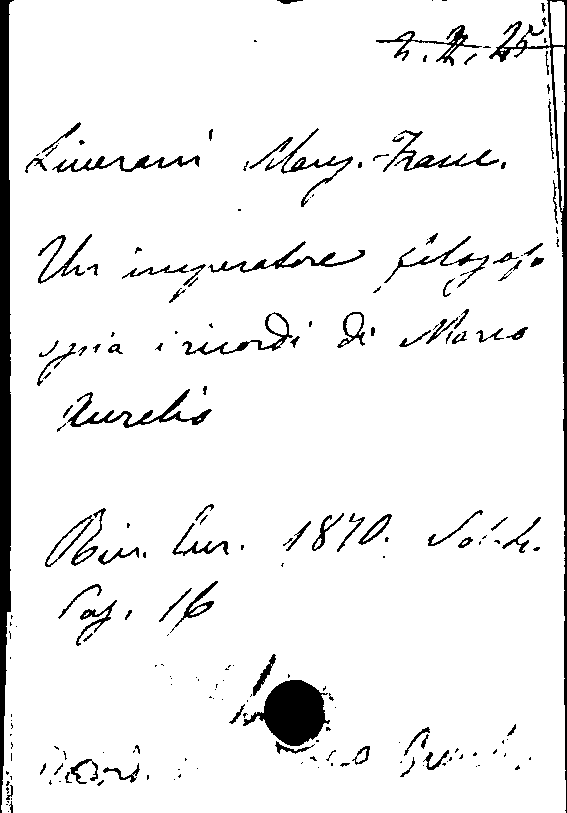 2.2.25
Liverani Mary. Franc.
Un imperatore filosofo
ossia i ricordi di Marco
Aurelio
Riv. Eur. 1870. Vol. 2.
Pag. 16